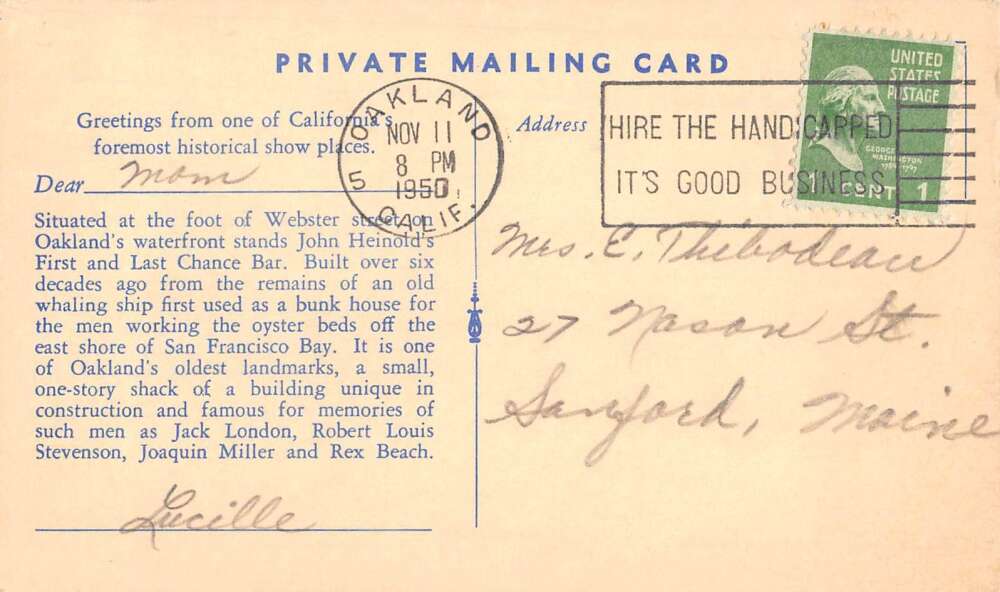 PRIVATE MAILING CARD
Greetings from one of California's
foremost historical show places.
Dear Mom
Situated at the foot of Webster street on
Oakland's waterfront stands John Heinold's
First and Last Chance Bar. Built over six
decades ago from the remains of an old
whaling ship first used as a bunk house for
the men working the oyster beds off the
east shore of San Francisco Bay. It is one
of Oakland's oldest landmarks, a small,
one-story shack of a building unique in
construction and famous for memories of
such men as Jack London, Robert Louis
Stevenson, Joaquin Miller and Rex Beach.
Lucille
OAKLAND
NOV 11
8 PM
1950
5 CALIF.
Address
HIRE THE HANDICAPPED
IT'S GOOD BUSINESS
UNITED
STATES
POSTAGE
GEORGE
WASHINGTON
1789-1797
1 CENT 1
Mrs. E. Thibodeau
27 Nason St.
Sanford, Maine